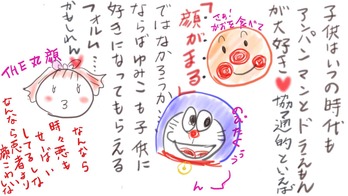 子供はいつの時代も
アンパンマンとドラえもん
が大好き♥協通的といえば
「顔がまる」
ではなかろうか…
ならばゆみこも子供に
好きになってもらえる
フォルム…
かもしれん
さあ！
かおを食べて
のび太くぅ
ん
THE丸顔
なんなら
時々悪も
せいばい
してるしな
なんなら悪者より
顔こわいな